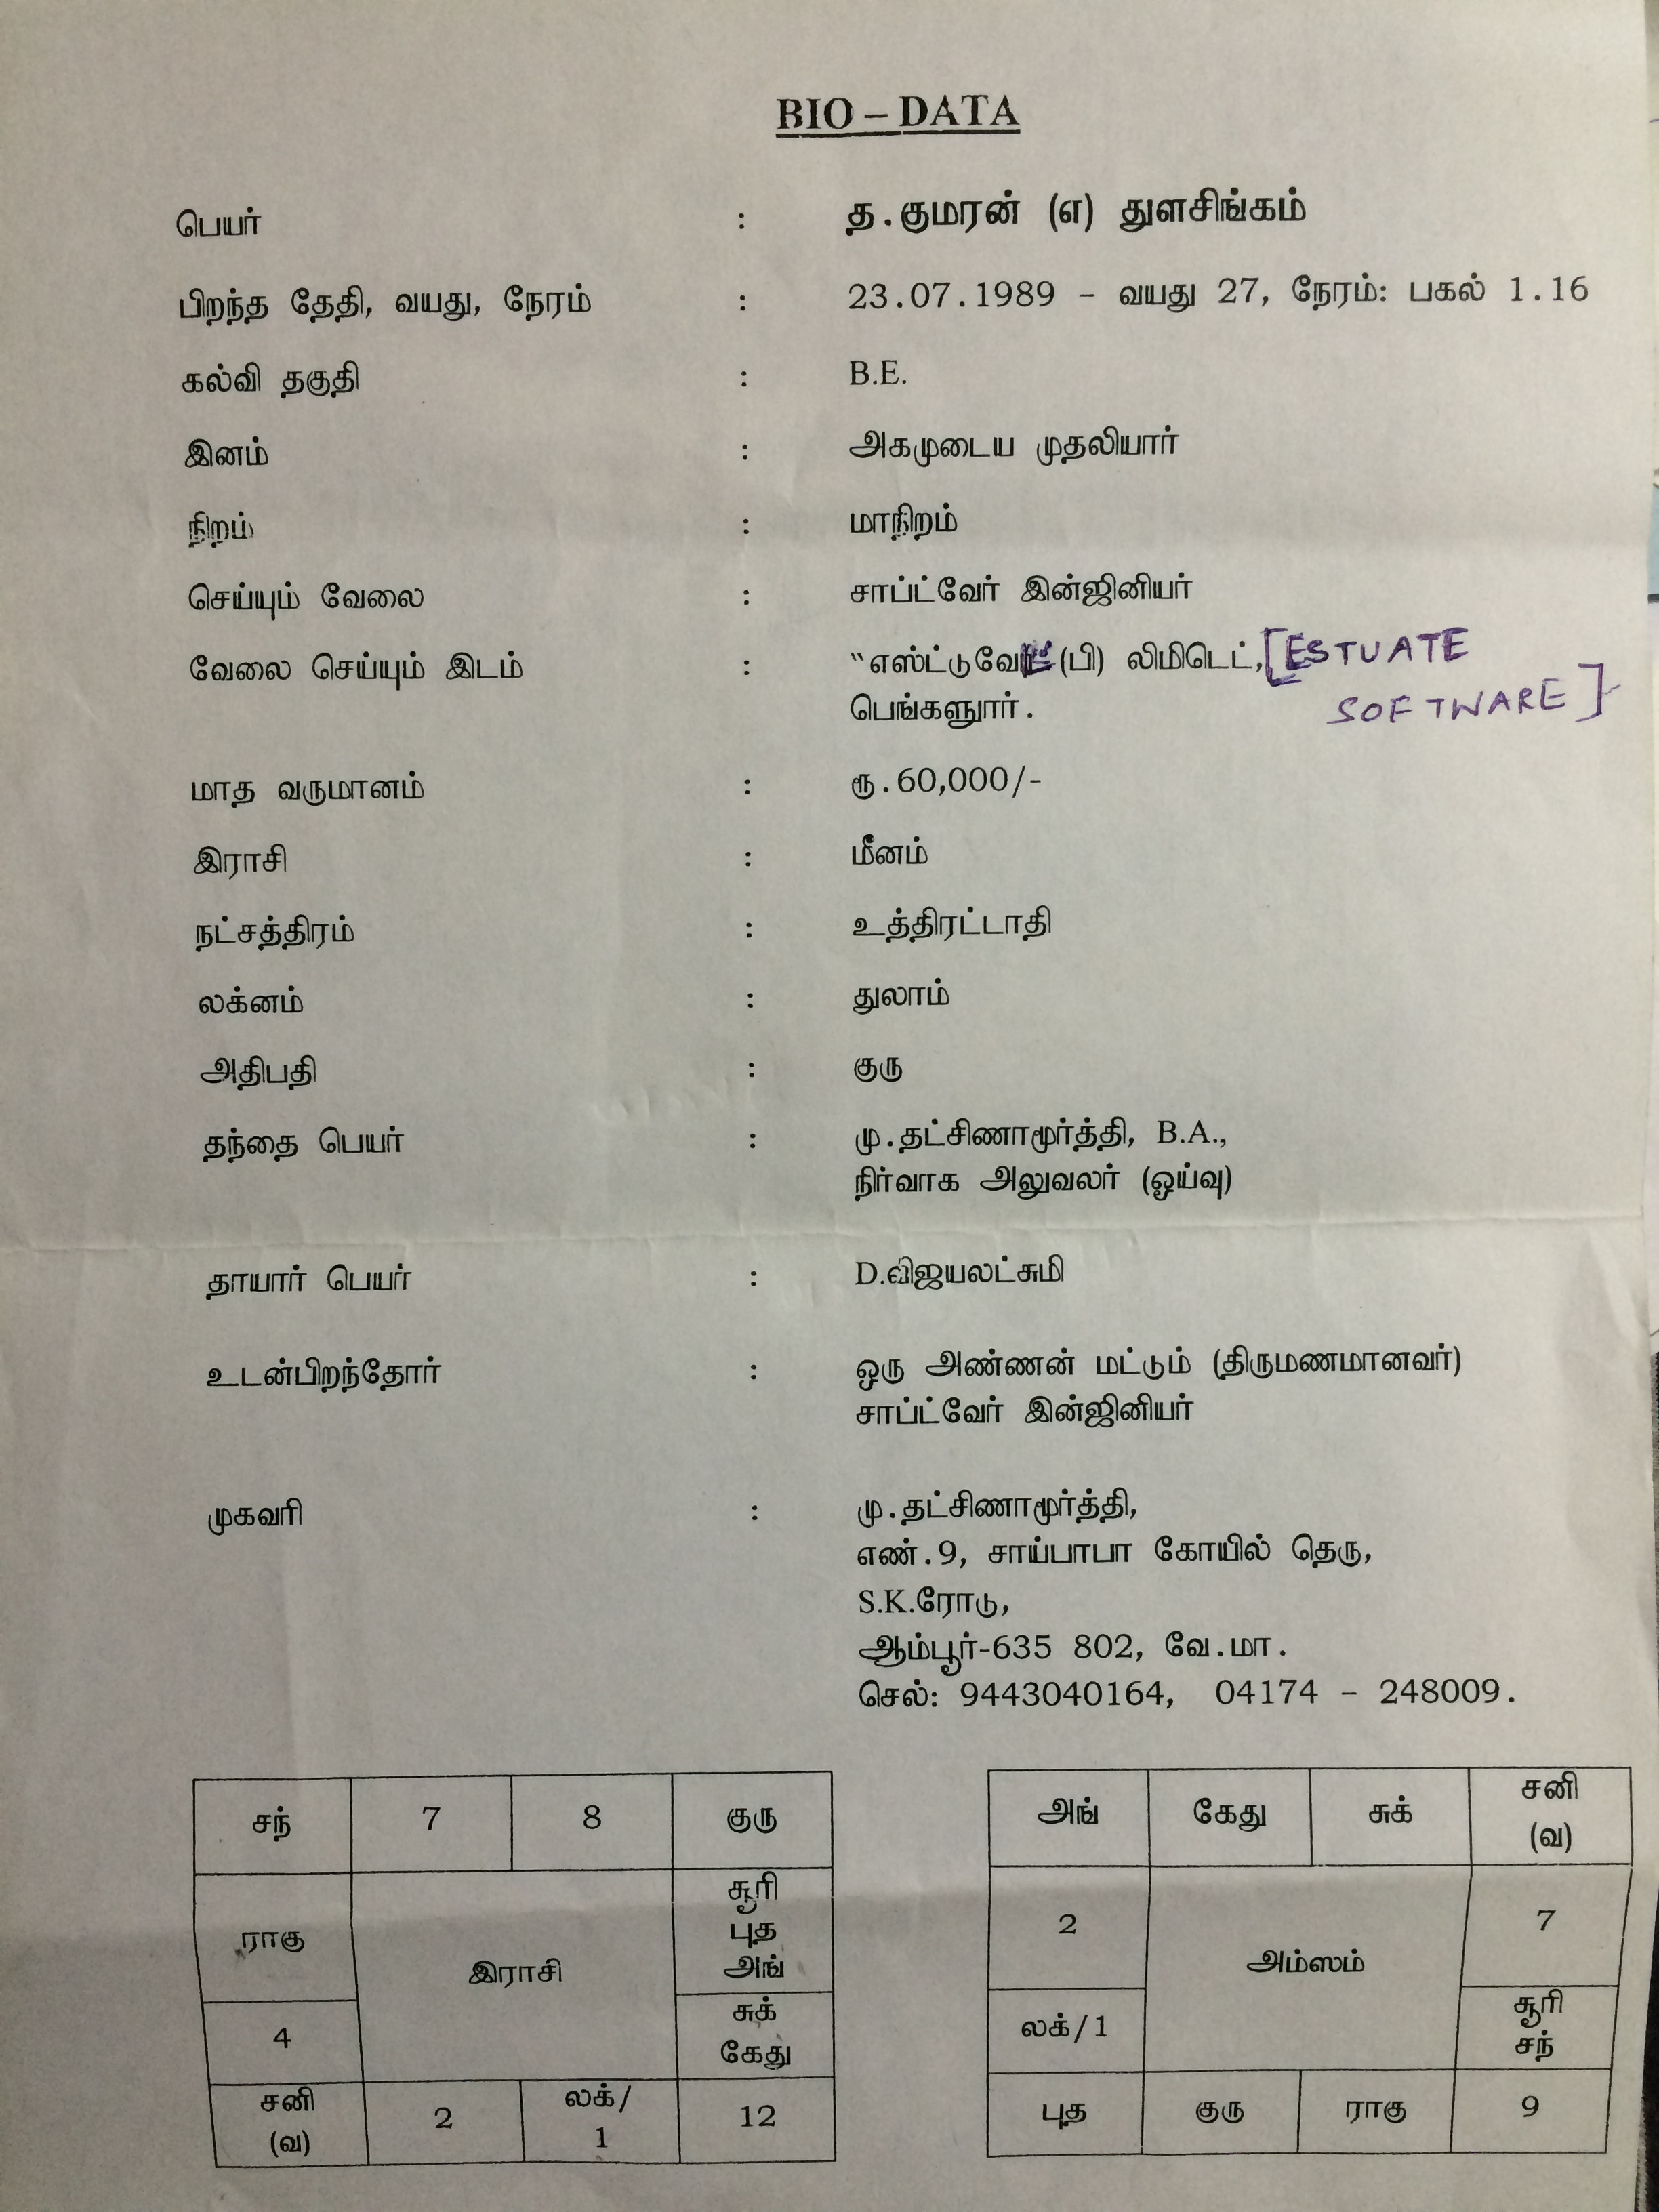 BIO – DATA
பெயர் : த.குமரன் (எ) துளசிங்கம்
பிறந்த தேதி, வயது, நேரம் : 23.07.1989 – வயது 27, நேரம்: பகல் 1.16
கல்வி தகுதி : B.E.
இனம் : அகமுடைய முதலியார்
நிறம் : மாநிறம்
செய்யும் வேலை : சாப்ட்வேர் இன்ஜினியர்
வேலை செய்யும் இடம் : (பி) லிமிடெட், [ESTUATE
பெங்களுர். SOFTWARE]
மாத வருமானம் : ரூ.60,000/-
இராசி : மீனம்
நட்சத்திரம் : உத்திரட்டாதி
லக்னம் : துலாம்
அதிபதி : குரு
தந்தை பெயர் : மு.தட்சிணாமூர்த்தி, B.A.,
நிர்வாக அலுவலர் (ஓய்வு)
தாயார் பெயர் : D.விஜயலட்சுமி
உடன்பிறந்தோர் : ஒரு அண்ணன் மட்டும் (திருமணமானவர்)
சாப்ட்வேர் இன்ஜினியர்
முகவரி : மு.தட்சிணாமூர்த்தி,
எண்.9, சாய்பாபா கோயில் தெரு,
S.K.ரோடு,
ஆம்பூர்-635 802, வே.மா.
செல்: 9443040164, 04174 – 248009.
சந் 7 8 குரு
ராகு இராசி சூரி புத அங்
4 சுக் கேது
சனி (வ) 2 லக்/ 1 12
அங் கேது சுக் சனி (வ)
2 அம்ஸம் 7
லக்/1 சூரி சந்
புத குரு ராகு 9